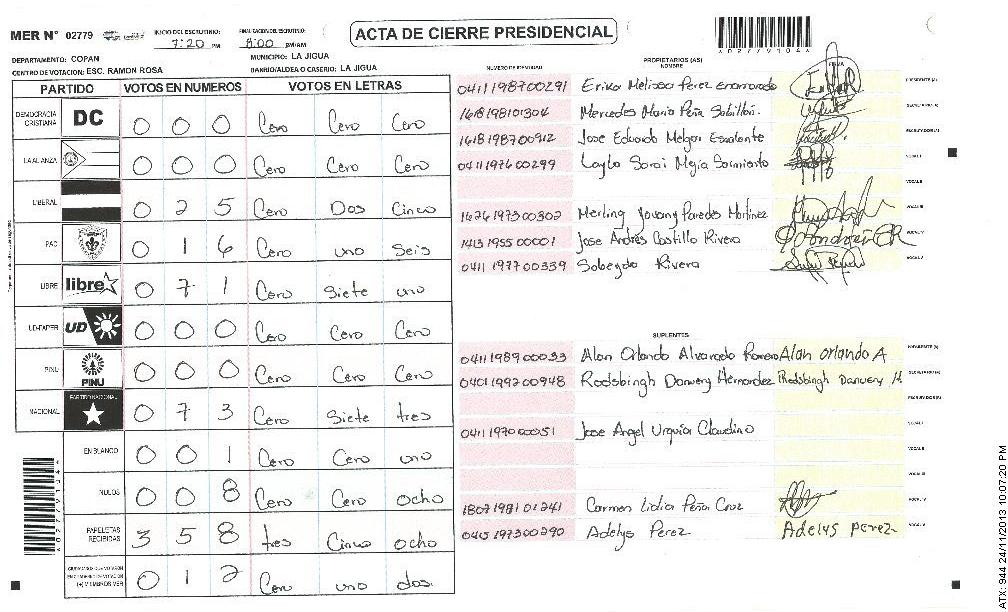 MER N° 02779
INICIO DEL ESCRUTINIO: 7:20 PM
FINALIZACION DEL ESCRUTINIO: 8:00 PM/AM
ACTA DE CIERRE PRESIDENCIAL
*02779104*
DEPARTAMENTO: COPAN
MUNICIPIO: LA JIGUA
CENTRO DE VOTACION: ESC. RAMON ROSA
BARRIO/ALDEA O CASERIO: LA JIGUA
PARTIDO VOTOS EN NUMEROS VOTOS EN LETRAS
DEMOCRACIA CRISTIANA DC 0 0 0 Cero Cero Cero
LA ALIANZA 0 0 0 Cero Cero Cero
LIBERAL 0 2 5 Cero Dos Cinco
PAC 0 1 6 Cero uno Seis
LIBRE libre 0 7 1 Cero Siete uno
UD-FAPER UD 0 0 0 Cero Cero Cero
PINU PINU 0 0 0 Cero Cero Cero
NACIONAL PARTIDO NACIONAL 0 7 3 Cero Siete tres
EN BLANCO 0 0 1 Cero Cero uno
NULOS 0 0 8 Cero Cero ocho
PAPELETAS RECIBIDAS 3 5 8 tres Cinco ocho
0 1 2 Cero uno dos.
PROPIETARIOS (AS)
NUMERO DE IDENTIDAD NOMBRE FIRMA
0411198700291 Erika Melissa Perez enamorado PRESIDENTE (A)
1618198101304 Mercedes Maria Peña Sabillón. SECRETARIO (A)
1618198700912 Jose Eduardo Melgar Escalante ESCRUTADOR (A)
0411197600299 Leyla Sarai Mejia Sarmiento VOCAL I
VOCAL II
1626197300302 Merling Jovany Paredes Martinez VOCAL III
1413195500001 Jose Andrés Castillo Rivera VOCAL IV
0411197700339 Sabeydo Rivera VOCAL V
SUPLENTES
0411198900033 Alan Orlando Alvarado Romero Alan orlando A PRESIDENTE (A)
0401199200948 Rodsbingh Danwery Hernandez Rodsbingh Danwery H. SECRETARIO (A)
ESCRUTADOR (A)
0411197000051 Jose Angel Urquia Claudino VOCAL I
VOCAL II
VOCAL III
1807198101241 Carmen Lidia Peña Cruz VOCAL IV
0415197300290 Adelys Perez Adelys Perez VOCAL V
*02779104*
ATX: 944 24/11/2013 10:07:20 PM